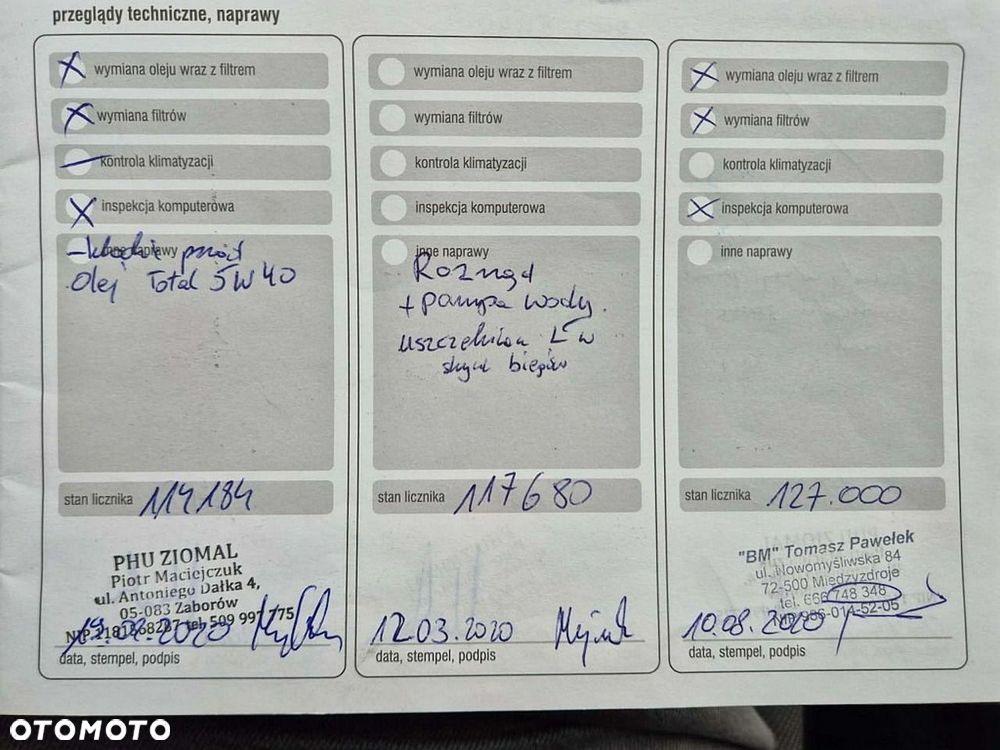 przeglądy techniczne, naprawy
wymiana oleju wraz z filtrem
wymiana filtrów
kontrola klimatyzacji
inspekcja komputerowa
inne naprawy
Olej Total 5W40
stan licznika 114184
PHU ZIOMAL
Piotr Maciejczuk
ul. Antoniego Dałka 4,
05-083 Zaborów
tel. 509 997 775
data, stempel, podpis
wymiana oleju wraz z filtrem
wymiana filtrów
kontrola klimatyzacji
inspekcja komputerowa
inne naprawy
Rozrząd
+ pompa wody.
biegów
stan licznika 117680
12.03.2020
data, stempel, podpis
wymiana oleju wraz z filtrem
wymiana filtrów
kontrola klimatyzacji
inspekcja komputerowa
inne naprawy
stan licznika 127.000
"BM" Tomasz Pawełek
ul. Nowomyśliwska 84
72-500 Międzyzdroje
tel. 666 748 348
NIP 986-014-52-05
10.08.2020
data, stempel, podpis
OTOMOTO